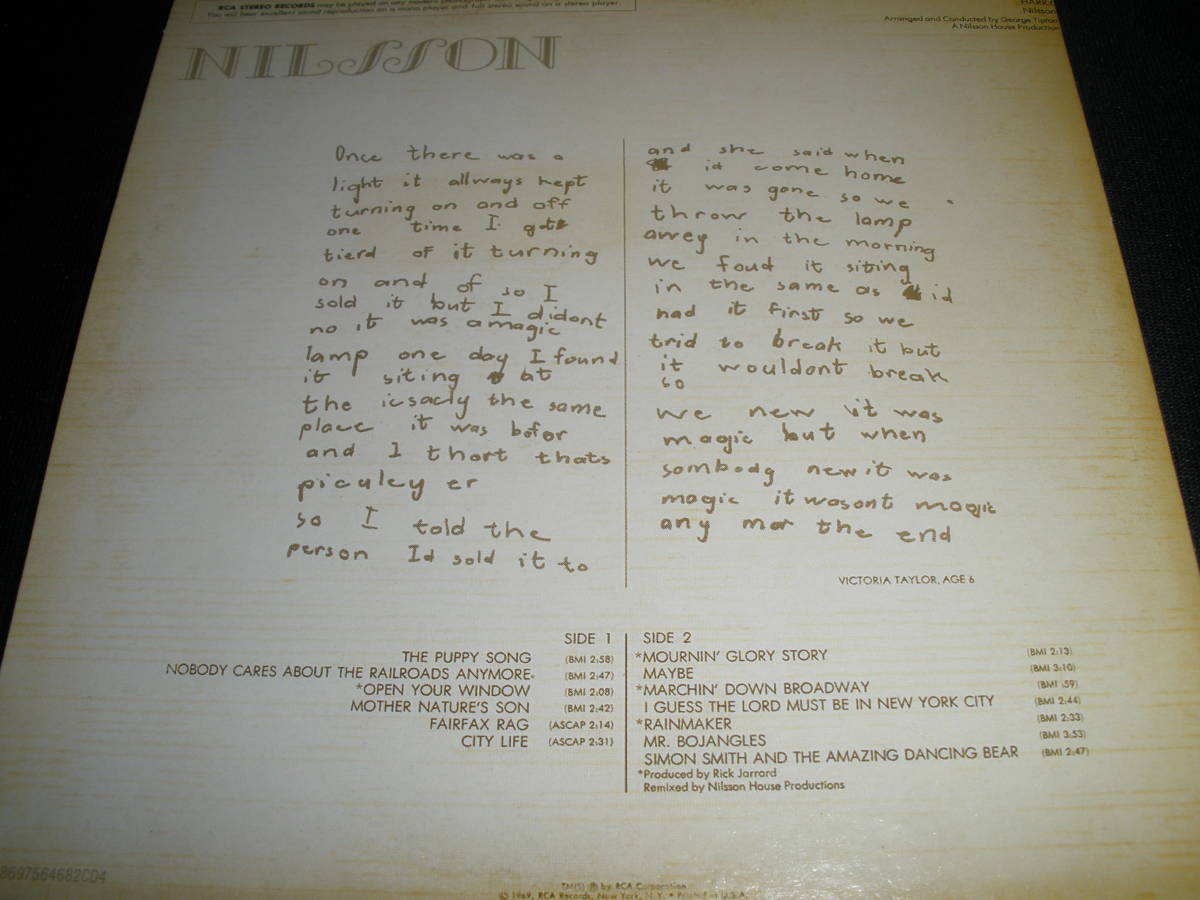 RCA STEREO RECORDS may be played on any modern
You will hear excellent sound reproduction on a mono player and full stereo sound on a stereo player.
HARRY
Nilsson
Arranged and Conducted by George Tipton
A Nilsson House Production
NILSSON
Once there was a
light it allways kept
turning on and off
one time I got
tierd of it turning
on and of so I
sold it but I didont
no it was a magic
lamp one day I found
it siting at
the icsacly the same
place it was bofor
and I thort thats
piculey er
so I told the
person Id sold it to
and she said when
id come home
it was gone so we
throw the lamp
awey in the morning
we foud it siting
in the same as id
had it first so we
trid to break it but
it wouldont break
so
we new it was
magic but when
sombody new it was
magic it wasont magic
any mor the end
VICTORIA TAYLOR, AGE 6
SIDE 1
THE PUPPY SONG (BMI 2:58)
NOBODY CARES ABOUT THE RAILROADS ANYMORE (BMI 2:47)
*OPEN YOUR WINDOW (BMI 2:08)
MOTHER NATURE'S SON (BMI 2:42)
FAIRFAX RAG (ASCAP 2:14)
CITY LIFE (ASCAP 2:31)
SIDE 2
*MOURNIN' GLORY STORY (BMI 2:13)
MAYBE (BMI 3:10)
*MARCHIN' DOWN BROADWAY (BMI :59)
I GUESS THE LORD MUST BE IN NEW YORK CITY (BMI 2:44)
*RAINMAKER (BMI 2:33)
MR. BOJANGLES (BMI 3:53)
SIMON SMITH AND THE AMAZING DANCING BEAR (BMI 2:47)
*Produced by Rick Jarrard
Remixed by Nilsson House Productions
8697564682CD4
TM(S) ® by RCA Corporation
© 1969, RCA Records, New York, N.Y. • Printed in U.S.A.